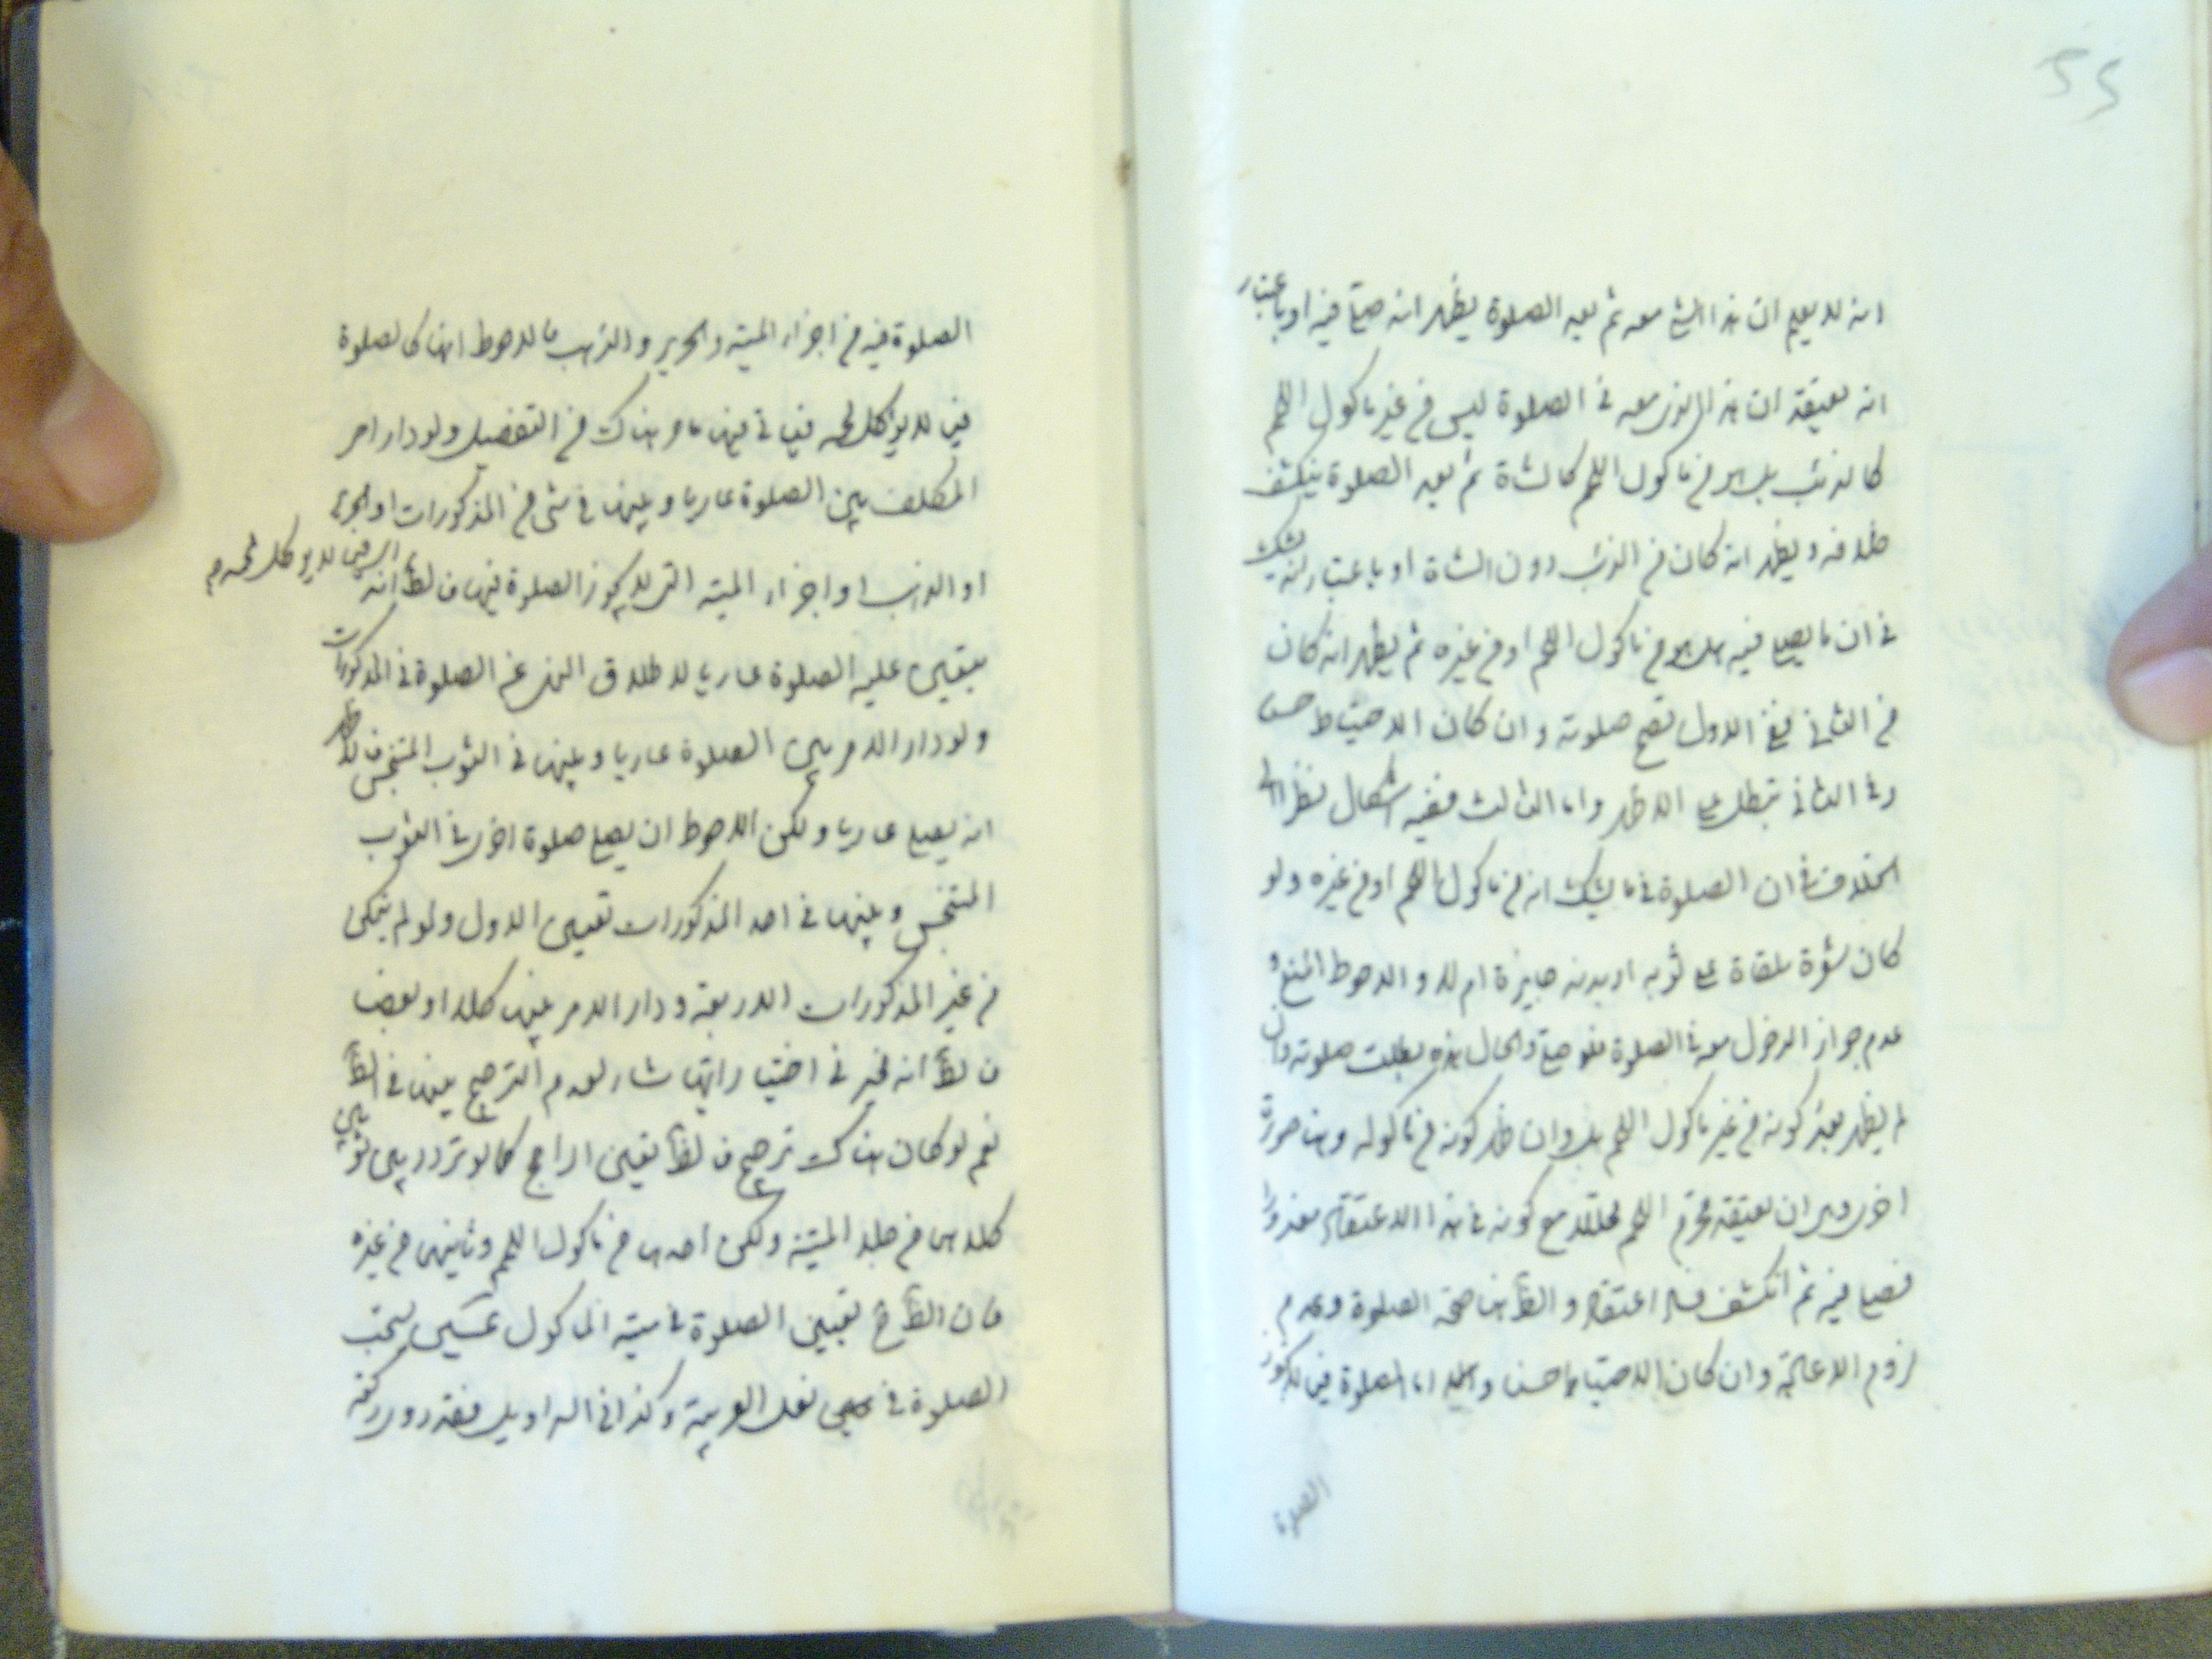 55
انه لا يعلم ان هذا الشئ معه ثم بعد الصلوة يظهر انه صلى فيه او باعتبار
انه يعتقد ان هذا الذى معه فى الصلوة ليس من غير ماكول اللحم
كالذئب بل هو من ماكول اللحم كالشاة ثم بعد الصلوة ينكشف
خلافه ويظهر انه كان من الذئب دون الشاة او باعتبار انه يشك
فى ان ما يصلى فيه هل هو من ماكول اللحم او من غيره ثم يظهر انه كان
من الثانى ففى الاول تصح صلوته وان كان الاحتياط حسنا
وفى الثانى تبطل على الاظهر واما الثالث ففيه اشكال نظرا الى
الخلاف فى ان الصلوة فيما يشك انه من ماكول اللحم او من غيره ولو
كان شعرة ملقاة على ثوبه او بدنه جايزة ام لا والاحوط المنع و
عدم جواز الدخول معه فى الصلوة فلو صلى والحال هذه بطلت صلوته وان
لم يظهر بعد كونه من غير ماكول اللحم بل وان ظهر كونه من ماكوله وهنا صورة
اخرى وهى ان يعتقد محرم اللحم محللا مع كونه فى هذا الاعتقاد معذورا
فصلى فيه ثم انكشف فساد اعتقاده والظ هنا صحة الصلوة وعدم
لزوم الاعادة وان كان الاحتياط حسنا واما الصلوة فيما لا يجوز
الصلوة
الصلوة فيه من اجزاء الميتة والحرير والذهب فالاحوط انها كالصلوة
فيما لا يؤكل لحمه فياتى فيها ما مر هناك من التفصيل ولو دار امر
المكلف بين الصلوة عاريا وبينها فى شئ من المذكورات اى الحرير
او الذهب او اجزاء الميتة التى لا يجوز الصلوة فيها فالظ انه
او فيما لا يوكل لحمه م
يتعين عليه الصلوة عاريا لاطلاق النهى عن الصلوة فى المذكورات
ولو دار الامر بين الصلوة عاريا وبينها فى الثوب المتنجس فالاظهر
انه يصلى عاريا ولكن الاحوط ان يصلى صلوة اخرى فى الثوب
المتنجس وبينها فى احد المذكورات تعين الاول ولو لم يتمكن
من غير المذكورات الاربعة ودار الامر بينها كلا او بعضا
فالظ انه مخير فى اختيار ايتها شاء لعدم الترجيح بينها فى الظ
نعم لو كان هناك ترجيح فالظ تعين الراجح كما لو تردد بين ثوبين
كلاهما من جلد الميتة ولكن احدهما من ماكول اللحم وثانيهما من غيره
فان الظ ح تعين الصلوة فى ميتة الماكول يستحب
الصلوة فى نعل العربية وكذا فى السراويل